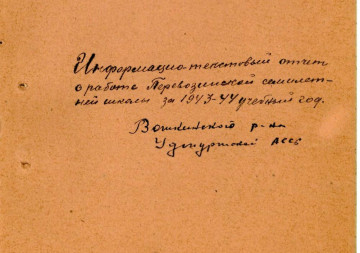 Информацио-текстовый отчет
о работе Перевозинской семилет-
ней школы за 1943-44 учебный год.
Воткинского р-на
Удмуртской АССР